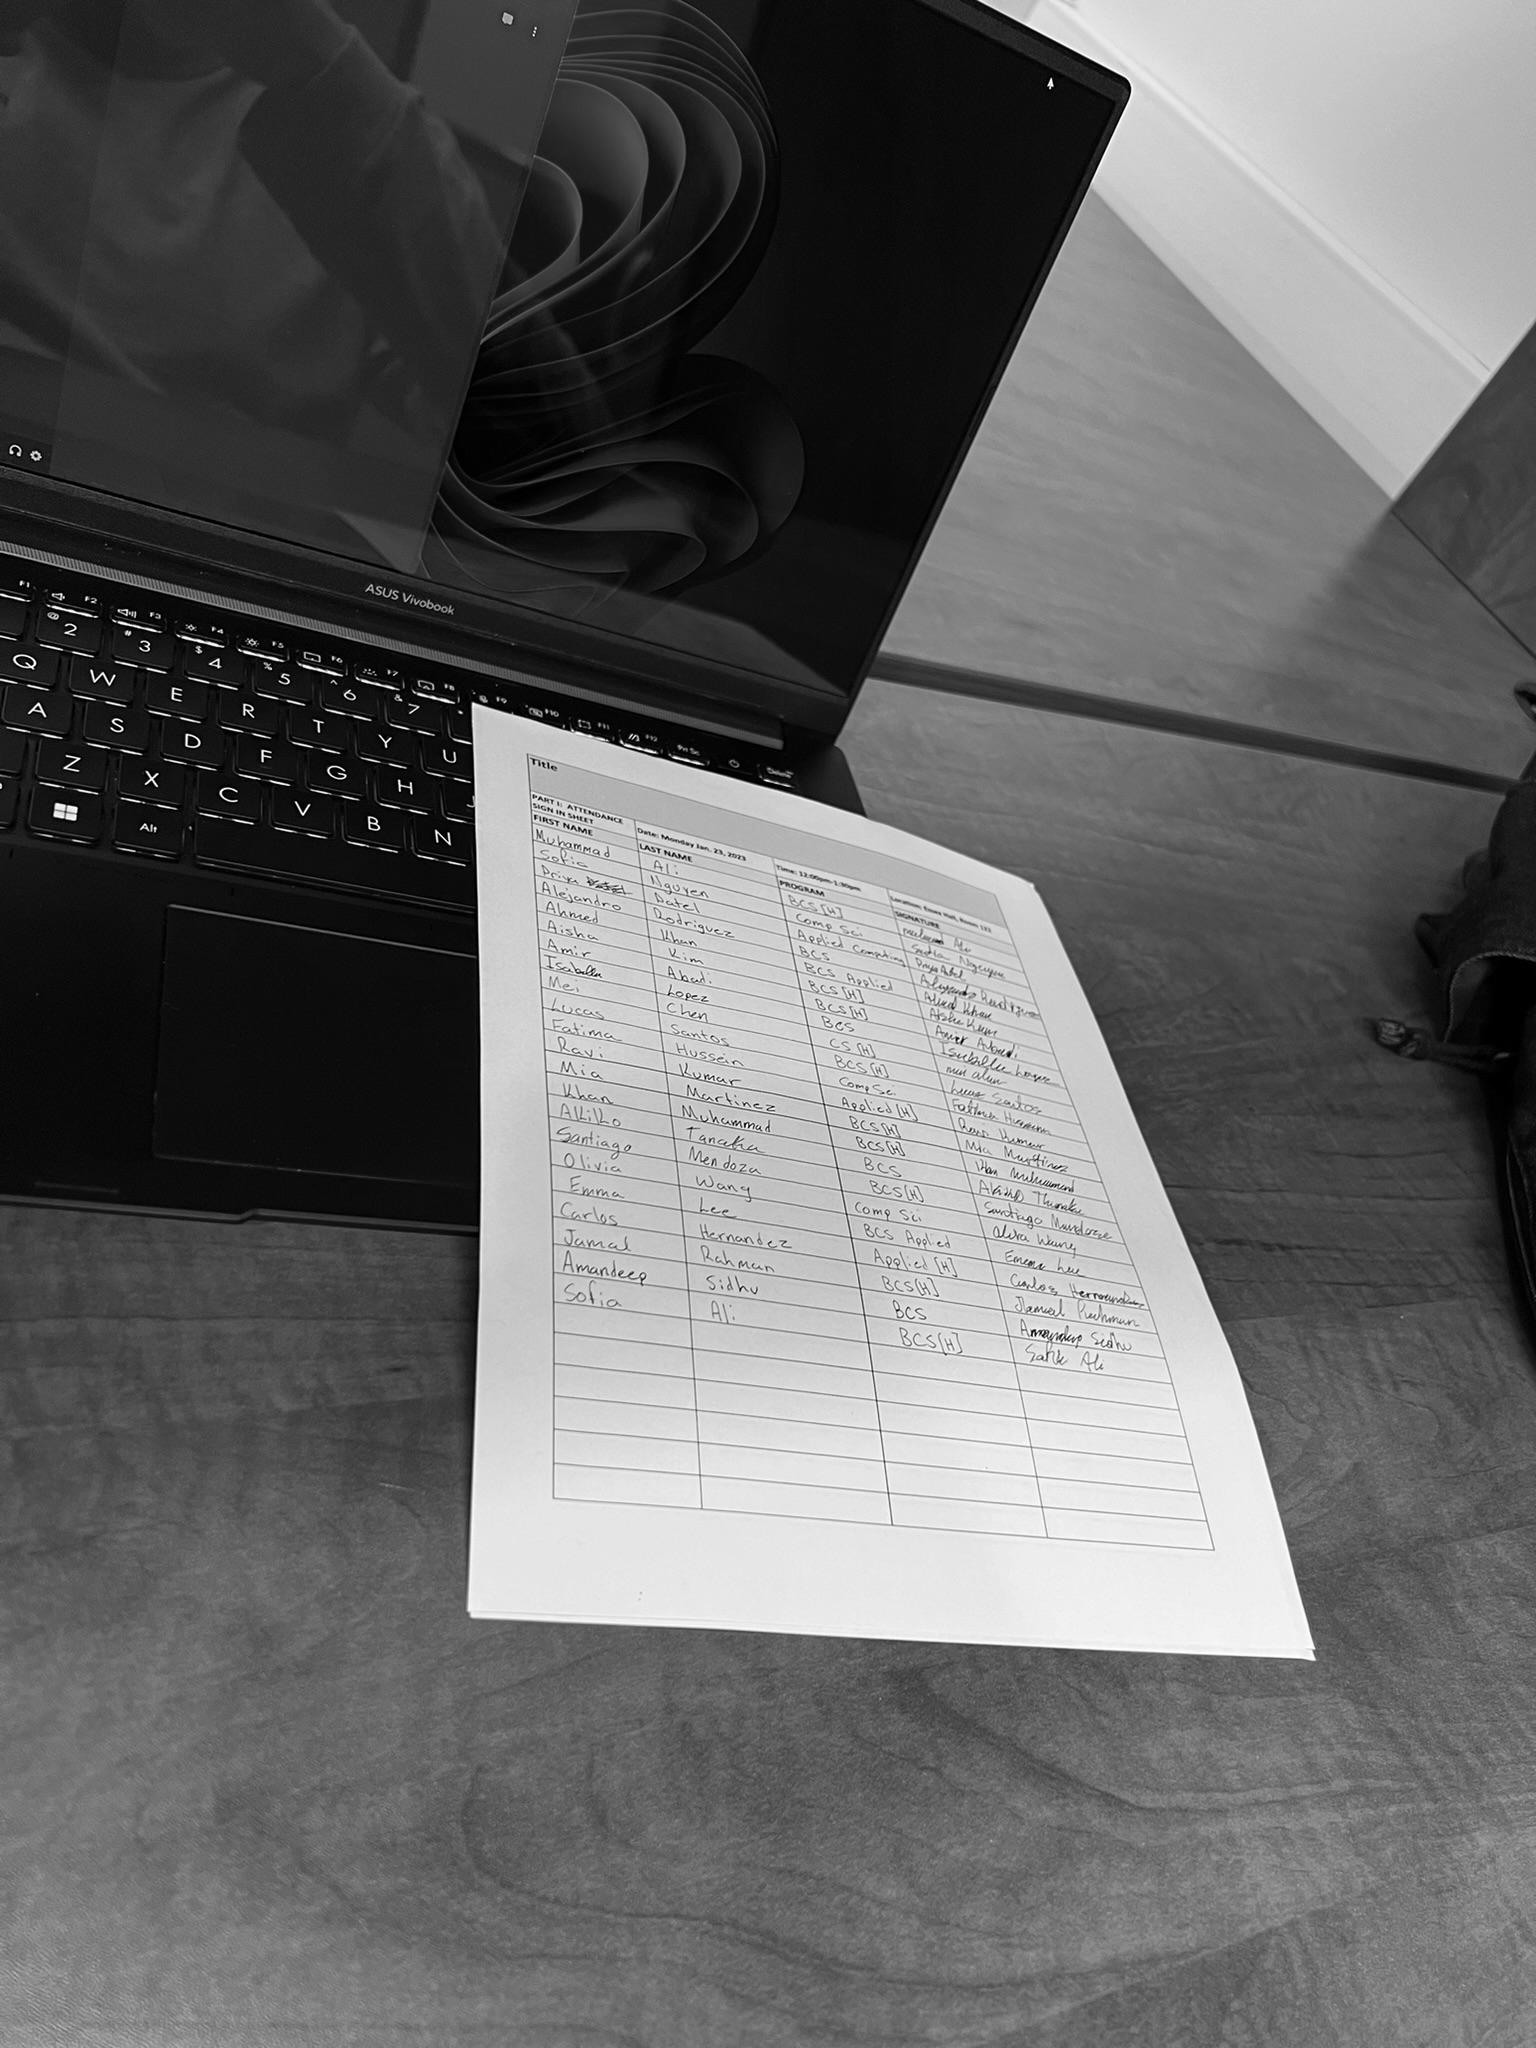 ASUS Vivobook
F1 F2 F3 F4 F5 F6 F7 F8 F9 F10 F11 F12 Prt Sc Delete
@ 2 # 3 $ 4 % 5 ^ 6 & 7 *
Q W E R T Y U
A S D F G H J
Z X C V B N
Alt
Title
PART I: ATTENDANCE SIGN IN SHEET Date: Monday Jan. 23, 2023 Time: 12:00pm-1:30pm Location: Essex Hall, Room 122
FIRST NAME LAST NAME PROGRAM SIGNATURE
Muhammad Ali BCS [H] Ali
Sofia Nguyen Comp Sci Sofia Nguyen
Priya Patel Applied Computing Priya Patel
Alejandro Rodriguez BCS Alejandro Rodriguez
Ahmed Khan BCS Applied Ahmed Khan
Aisha Kim BCS [H] Aisha Kim
Amir Abadi BCS [H] Amir Abadi
Isabella Lopez BCS Isabella Lopez
Mei Chen CS [H] mei chen
Lucas Santos BCS [H] Lucas Santos
Fatima Hussein Comp Sci Fatima Hussein
Ravi Kumar Applied [H] Ravi Kumar
Mia Martinez BCS [H] Mia Martinez
Khan Muhammad BCS [H] Khan Muhammad
AKiKo Tanaka BCS Akiko Tanaka
Santiago Mendoza BCS [H] Santiago Mendoza
Olivia Wang Comp Sci Olivia Wang
Emma Lee BCS Applied Emma Lee
Carlos Hernandez Applied [H] Carlos Hernandez
Jamal Rahman BCS [H] Jamal Rahman
Amandeep Sidhu BCS Amandeep Sidhu
Sofia Ali BCS [H] Sofia Ali